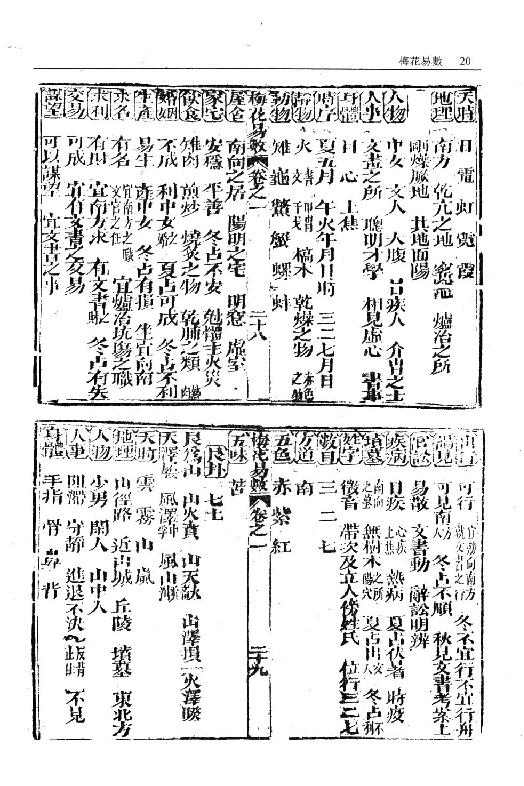 梅花易數 20
天時 日 電 虹 霓 霞
地理 南方 乾亢之地 窰 爐冶之所
剛燥厥地 其地面陽
人物 中女 文人 大腹 目疾人 介冑之士
人事 文書之所 聰明才學 相見虛心 書事
身體 目 心 上焦
時序 夏五月 午火年月日時 三二七月日
靜物 火 書 文 甲冑 干戈 槁木 乾燥之物
動物 雉 龜 鱉 蟹 螺 蚌
梅花易數 卷之一 二十八
屋舍 南向之居 陽明之宅 明窓 虛室
家宅 安穩 平善 冬占不安 尅體主火災
飲食 雉肉 煎炒 燒炙之物 乾脯之類
婚姻 不成 利中女婚 夏占可成 冬占不利
生產 易生 產中女 冬占有損 坐宜向南
求名 有名 宜南方之職 文官之任 宜爐冶坑場之職
求利 有財 宜南方求 有文書財 冬占有失
交易 可成 宜有文書之交易
謀望 可以謀望 宜文書之事
出行 可行 宜向南方 就文書之行 冬不宜行 不宜行舟
謁見 可見南方人 冬占不順 秋見文書考案
官訟 易散 文書動 辭訟明辨
疾病 目疾 心疾 上焦 熱病 夏占伏暑 時疫
墳墓 南向之墓 無樹木 陽穴 夏占出文人 冬占不利
姓字 徵音 帶次及立人傍姓氏 位行三二七
數目 三 二 七
方道 南
五色 赤 紫 紅
梅花易數 卷之一 二十九
五味 苦
艮卦 七
艮為山 山火賁 山天大畜 山澤損 火澤睽
天澤履 風澤中孚 風山漸
天時 雲 霧 山嵐
地理 山徑路 近山城 丘陵 墳墓 東北方
人物 少男 閒人 山中人
人事 阻滯 守靜 進退不決 不見
身體 手指 骨 鼻 背